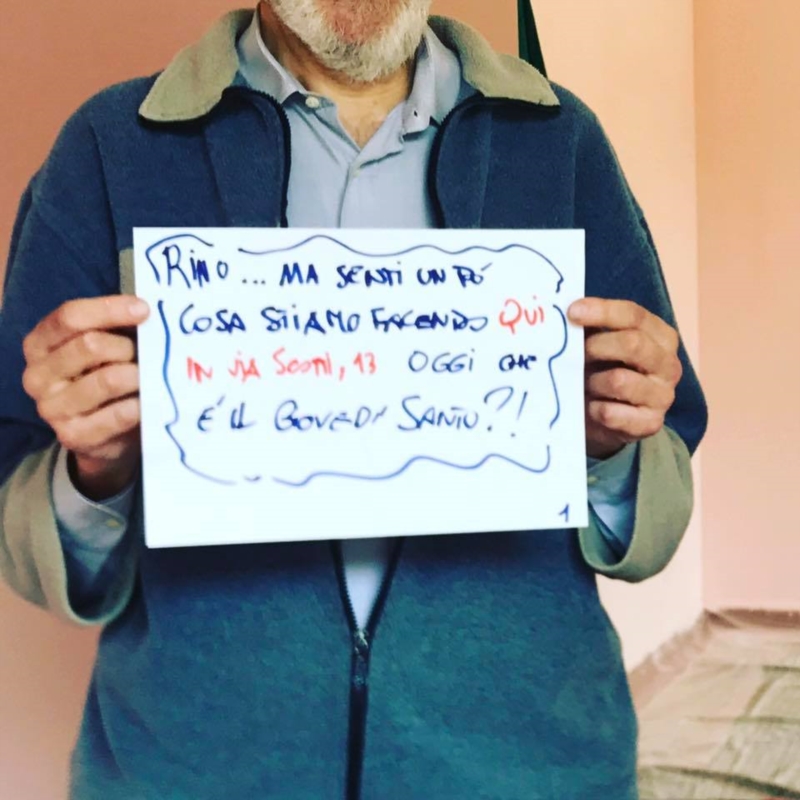 RINO... MA SENTI UN PÓ
COSA STIAMO FACENDO QUI
IN VIA SCOTTI, 13 OGGI CHE
É IL GIOVEDI' SANTO?!
1